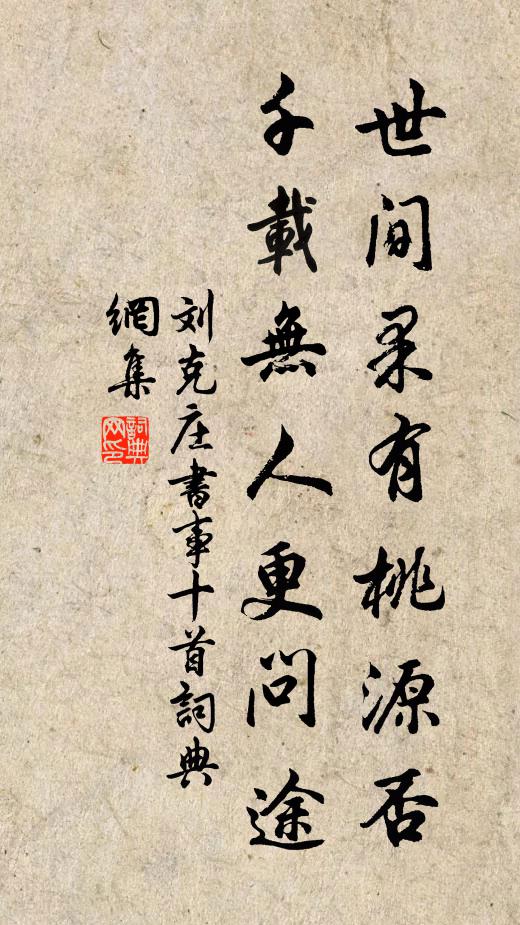 世间果有桃源否
千載無人更問途
刘克庄書事十首詞典
網集
詞典
网印